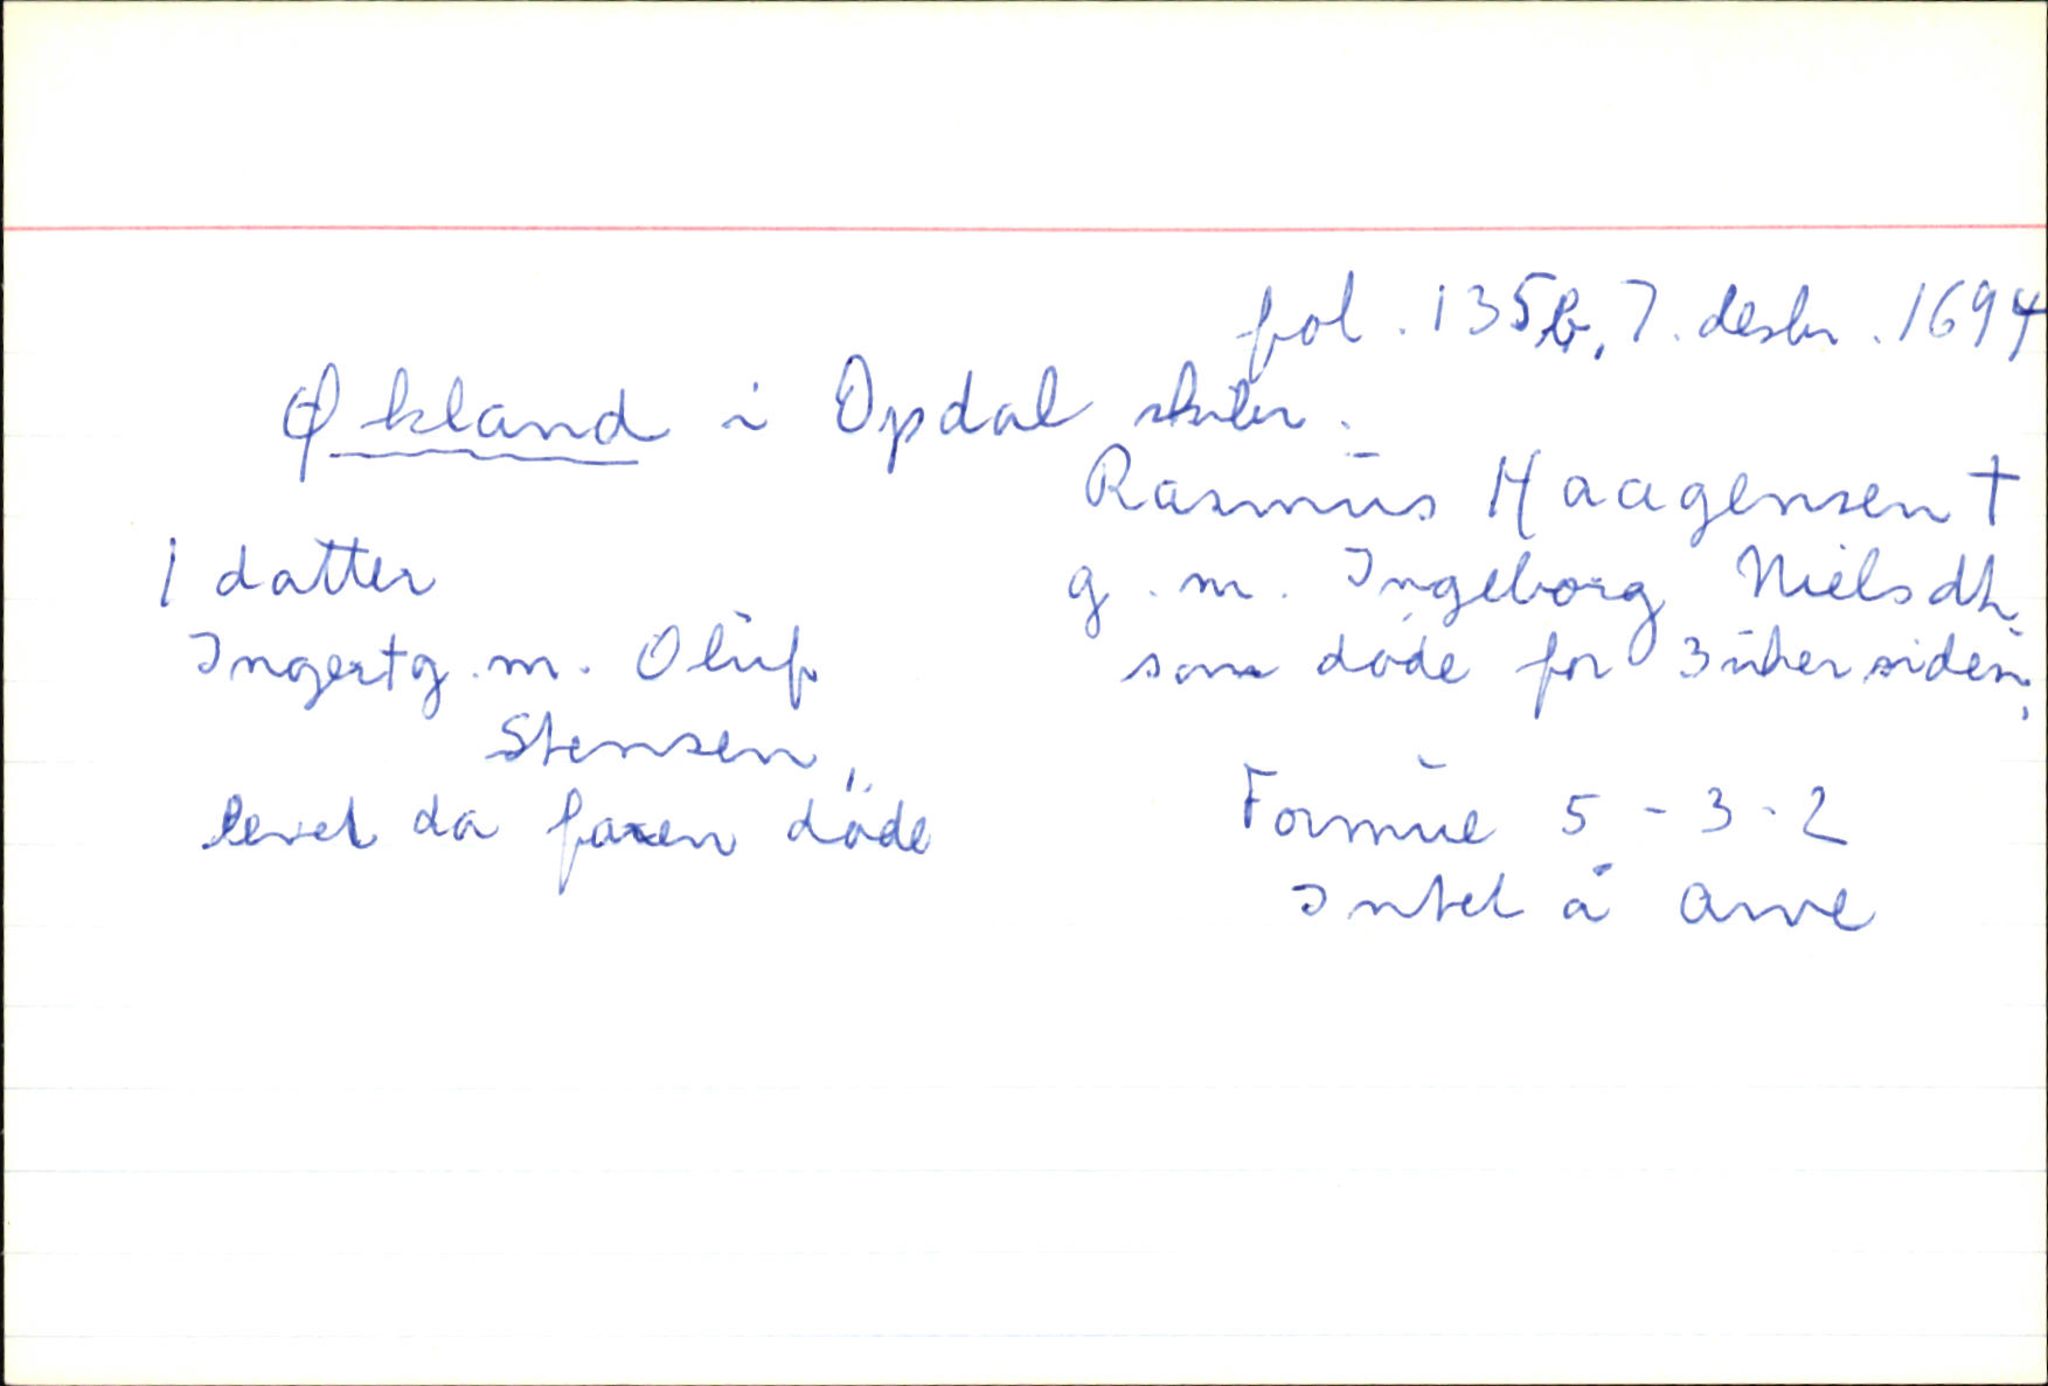 fol. 135b, 7. desbr. 1694
Økland i Opdal skibr.
Rasmus Haagensen †
g. m. Ingeborg Nielsdtr
som døde for 3 uker siden,
1 datter
Ingert g. m. Oluf
Stensen,
levet da faren døde
Formue 5-3-2
Intet å arve